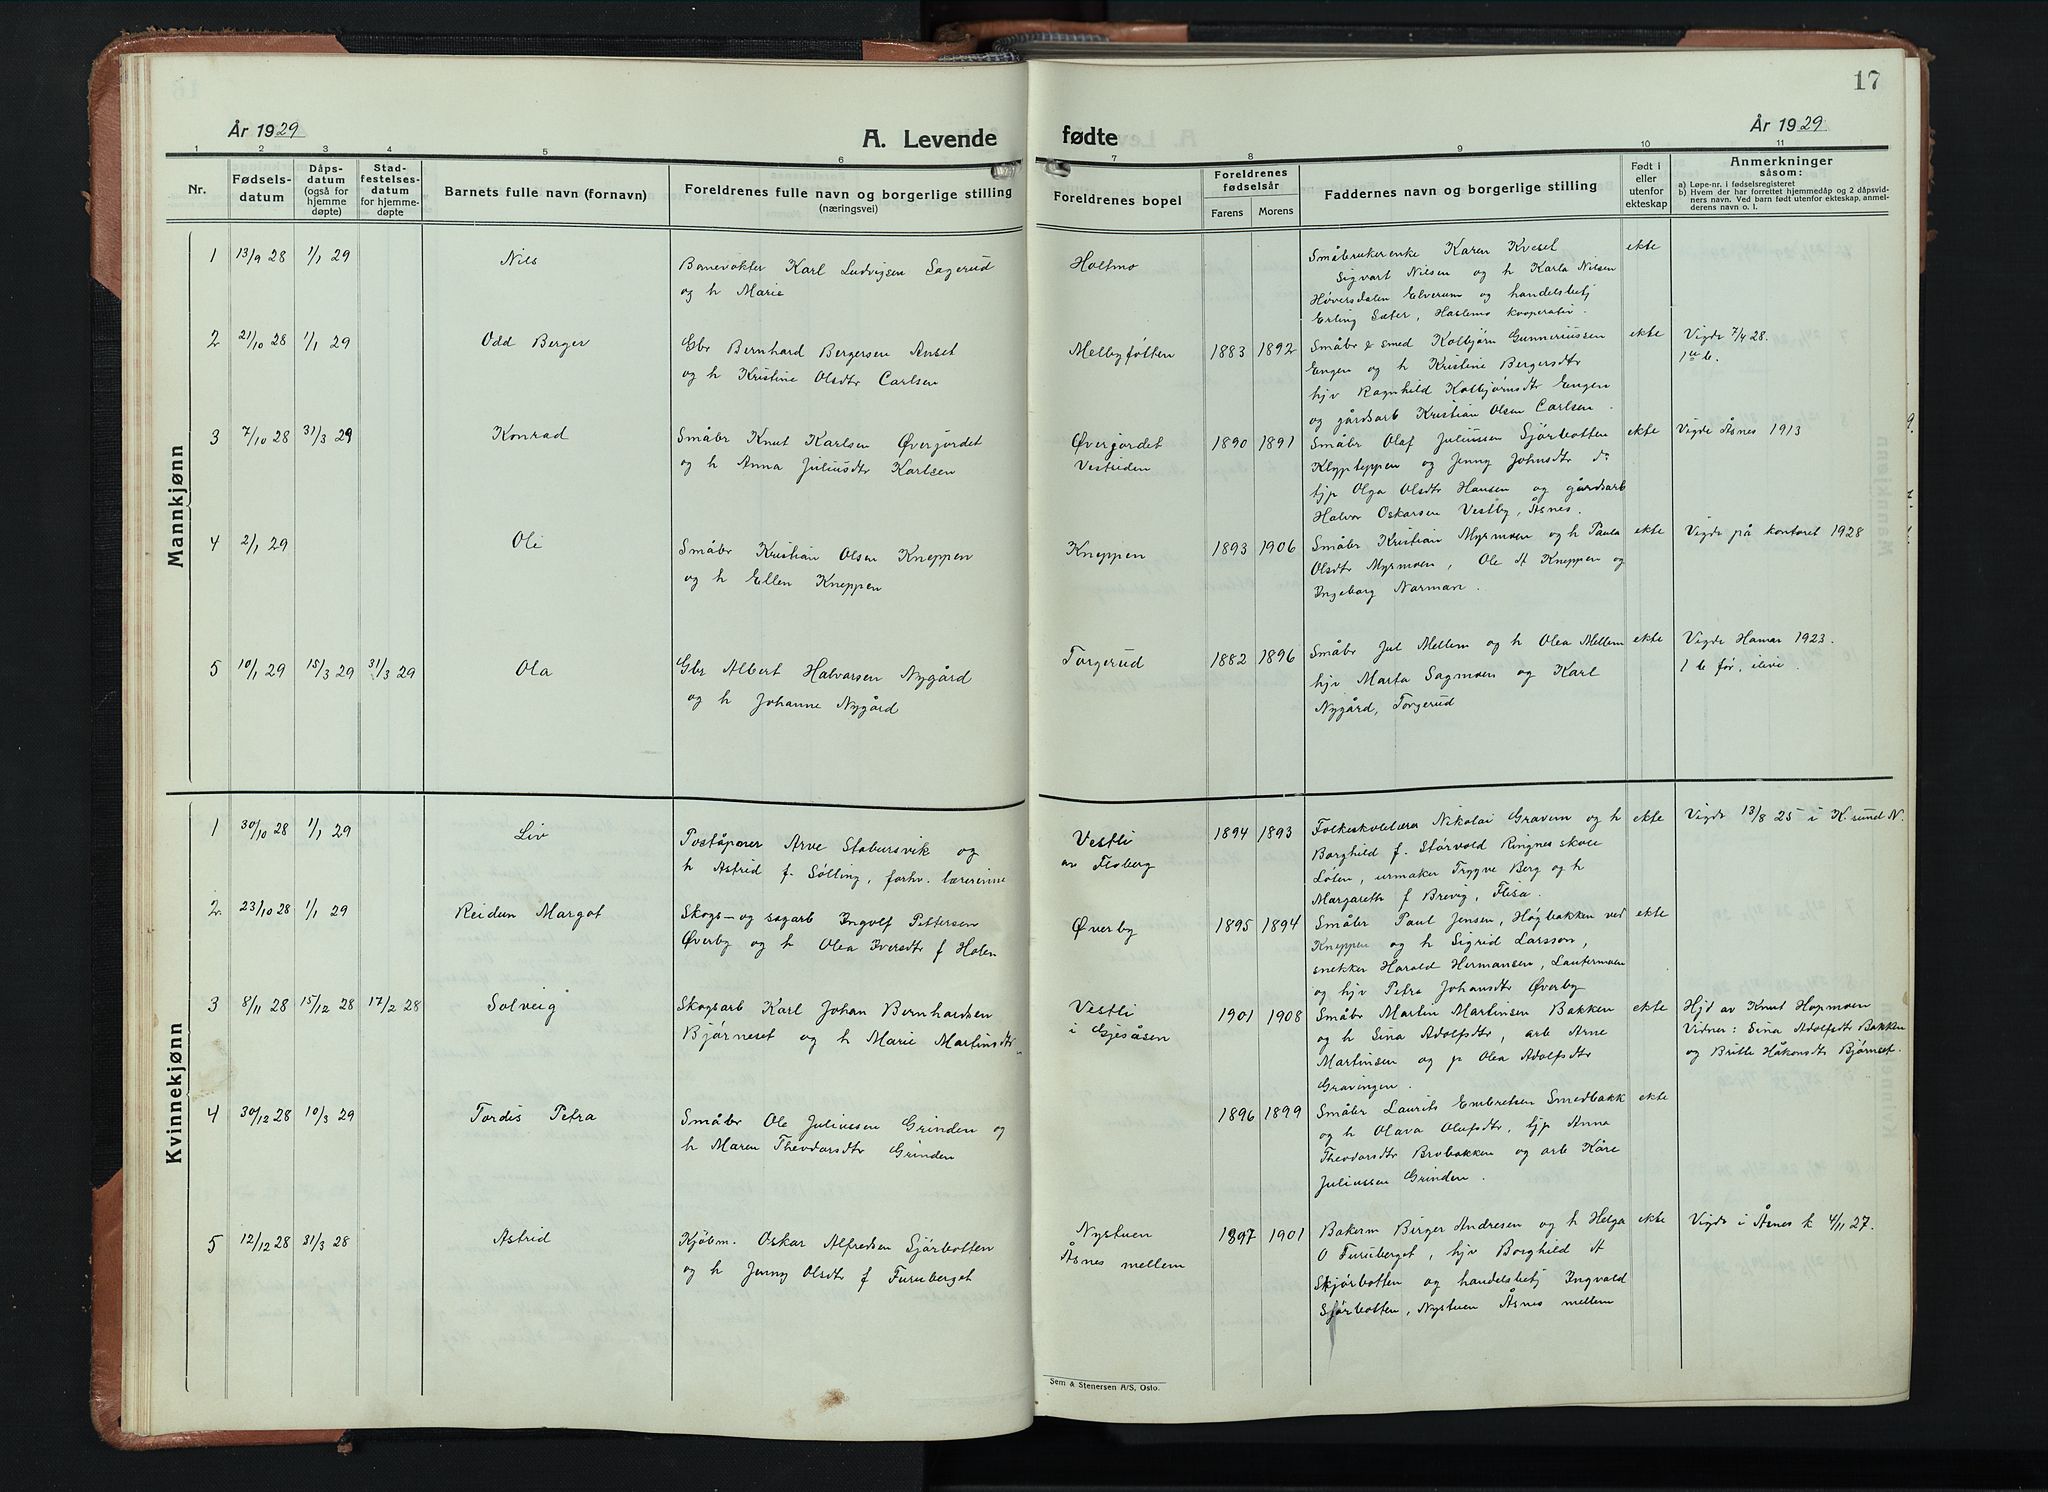 17
År 1929
A. Levende
fødte
År 1929
1 2 3 4 5 6 7 8 9 10 11
Nr.
Fødsels-
datum
Dåps-
datum
(også for
hjemme
døpte)
Stad-
festelses-
datum
for hjemme-
døpte
Barnets fulle navn (fornavn)
Foreldrenes fulle navn og borgerlige stilling
(næringsvei)
Foreldrenes bopel
Foreldrenes
fødselsår
Farens Morens
Faddernes navn og borgerlige stilling
Født i
eller
utenfor
ekteskap
Anmerkninger
såsom:
a) Løpe-nr. i fødselsregisteret
b) Hvem der har forrettet hjemmedåp og 2 dåpsvid-
ners navn. Ved barn født utenfor ekteskap, anmel-
derens navn o. l.
Mannkjønn
1 13/9 28 1/1 29 Nils
Banevokter Karl Ludvigsen Sagerud
og h Marie
Holtmo
Småbrukerenke Karen Kvesel
Sigvart Nilsen og h Karla Nilsen
Høversdalen Elverum og handelsbetj
Erling Sæter, Haslemo kooperativ.
ekte
2 21/10 28 1/1 29 Odd Berger
Gbr Bernhard Bergersen Anset
og h Kristine Olsdtr Carlsen
Melbyføtten
1883 1892
Småbr & smed Kolbjørn Gunneriussen
Engen og h Kristine Bergersdtr
hjv Ragnhild Kolbjørnsdtr Engen
og gårdsarb Kristian Olsen Carlsen.
ekte
Vigde 7/4 28.
3 7/10 28 31/3 29 Konrad
Småbr Knut Karlsen Øvergjordet
og h Anna Juliusdtr Karlsen
Øvergjordet
Vestsiden
1890 1891
Småbr Olaf Juliussen Sjørbotten
Klypteppen og Jenny Johnsdtr do
tjp Olga Olsdtr Hansen og gårdsarb
Halvor Oskarsen Vestby, Åsnes.
ekte
Vigde Åsnes 1913
4 2/1 29 Oli
Småbr Kristian Olsen Kneppen
og h Ellen Kneppen
Kneppen
1893 1906
Småbr Kristian Myrmoen og h Paula
Olsdtr Myrmoen, Ole A Kneppen og
Ingeborg Norman.
ekte
Vigde på kontoret 1928
5 10/1 29 15/3 29 31/3 29 Ola
Gbr Albert Halvorsen Nygård
og h Johanne Nygård
Torgerud
1882 1896
Småbr Jul Mellem og h Olea Mellem
hjv Marta Sagmoen og Karl
Nygård, Torgerud
ekte
Vigde Hamar 1923.
1 b før, ilive.
Kvinnekjønn
1 30/10 28 1/1 29 Liv
Poståpner Arve Stabursvik og
h Astrid f. Sølling, forhv. lærerinne
Vestli
av Floberg
1894 1893
Folkeskolelærer Nikolai Gravem og h
Borghild f. Storvold Ringnes skole
Løten, urmaker Trygve Berg og h
Margareth f Brevig, Flisa.
ekte
Vigde 13/8 25 i K.sund N.
2 23/10 28 1/1 29 Reidun Margot
Skogs- og sagarb Ingolf Pettersen
Øverby og h Olea Iversdtr f Holen
Øverby
1895 1894
Småbr Paul Jensen, Høgbakken ved
Kneppen og h Sigrid Larsson,
snekker Harald Hermansen, Lautermoen
og hjv Petra Johansdtr Øverby
ekte
3 8/11 28 15/12 28 17/2 28 Solveig
Skogsarb Karl Johan Bernhardsen
Bjørneset og h Marie Martinsdtr
Vestli
i Gjesåsen
1901 1908
Småbr Martin Martinsen Bakken
og h Sina Adolfsdtr, arb Arne
Martinsen og p Olea Adolfsdtr
Gravingen.
ekte
Hjd av Knut Hopmoen
Vidner: Sina Adolfsdtr Bakken
og Britte Håkonsdtr Bjørnset.
4 30/12 28 10/3 29 Tordis Petra
Småbr Ole Juliussen Grinden og
h Maren Theodorsdtr Grinden
1896 1899
Småbr Laurits Embretsen Smedbakk
og h Olava Olufsdtr, tjp Anna
Theodorsdtr Brobakken og arb Kåre
Juliussen Grinden.
ekte
5 12/12 28 31/3 28 Astrid
Kjøbm. Oskar Alfredsen Sjørbotten
og h Jenny Olsdtr f Furuberget
Nystuen
Åsnes mellem
1897 1901
Bakerm Birger Andresen og h Helga
O Furuberget, hjv Borghild A
Skjørbotten og handelsbetj Ingvald
Sjørbotten, Nystuen Åsnes mellem
ekte
Vigde i Åsnes k 4/11 27.
Sem & Stenersen A/S, Oslo.